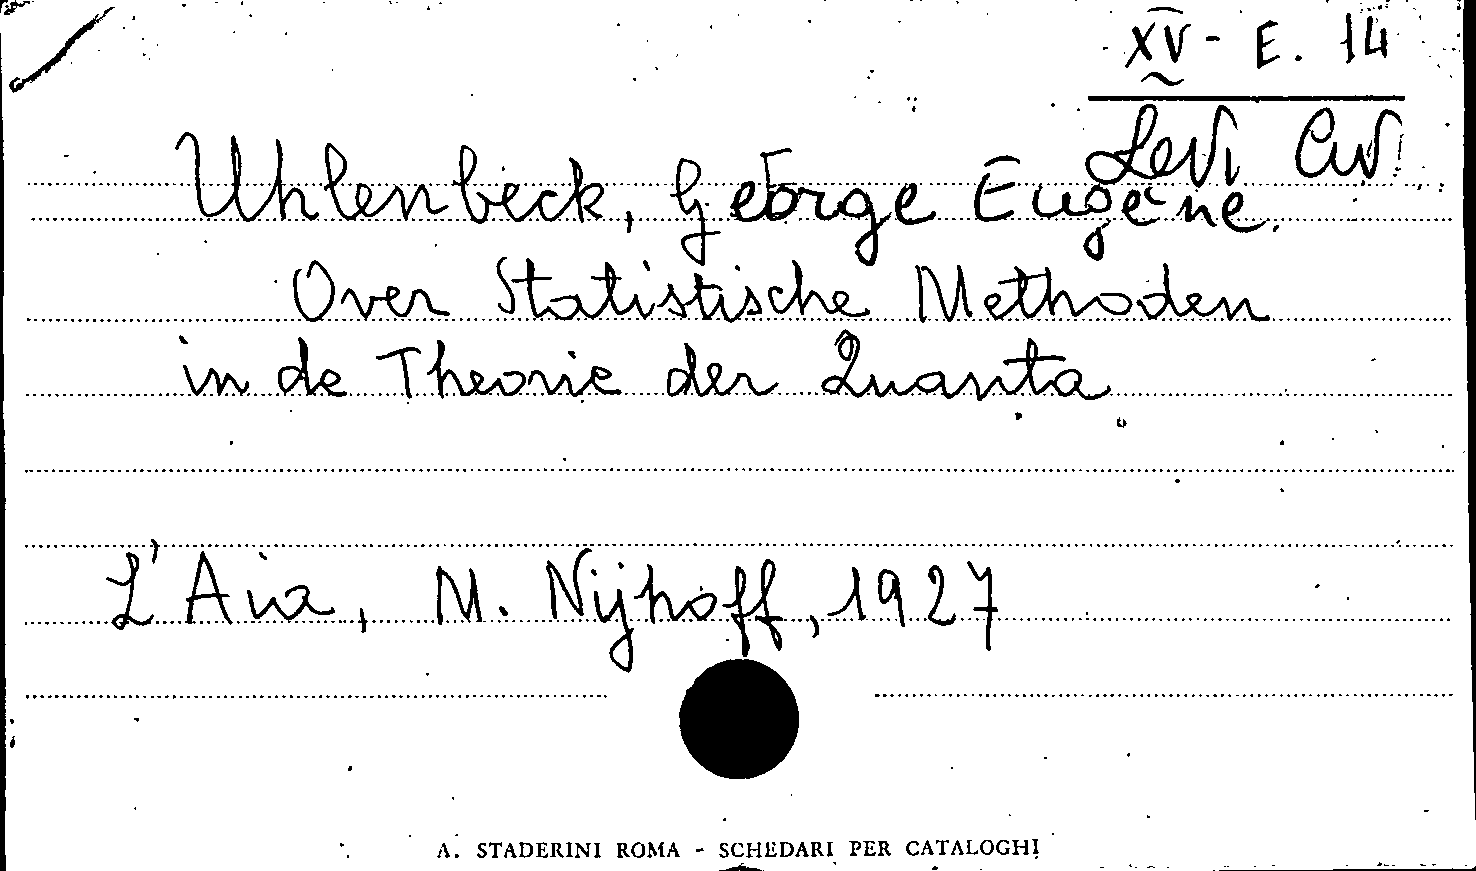 XV - E. 14
Levi Civ
Uhlenbeck, George Eugène.
Over Statistische Methoden
in de Theorie der Quanta
L'Aia, M. Nijhoff, 1927
A. STADERINI ROMA - SCHEDARI PER CATALOGHI